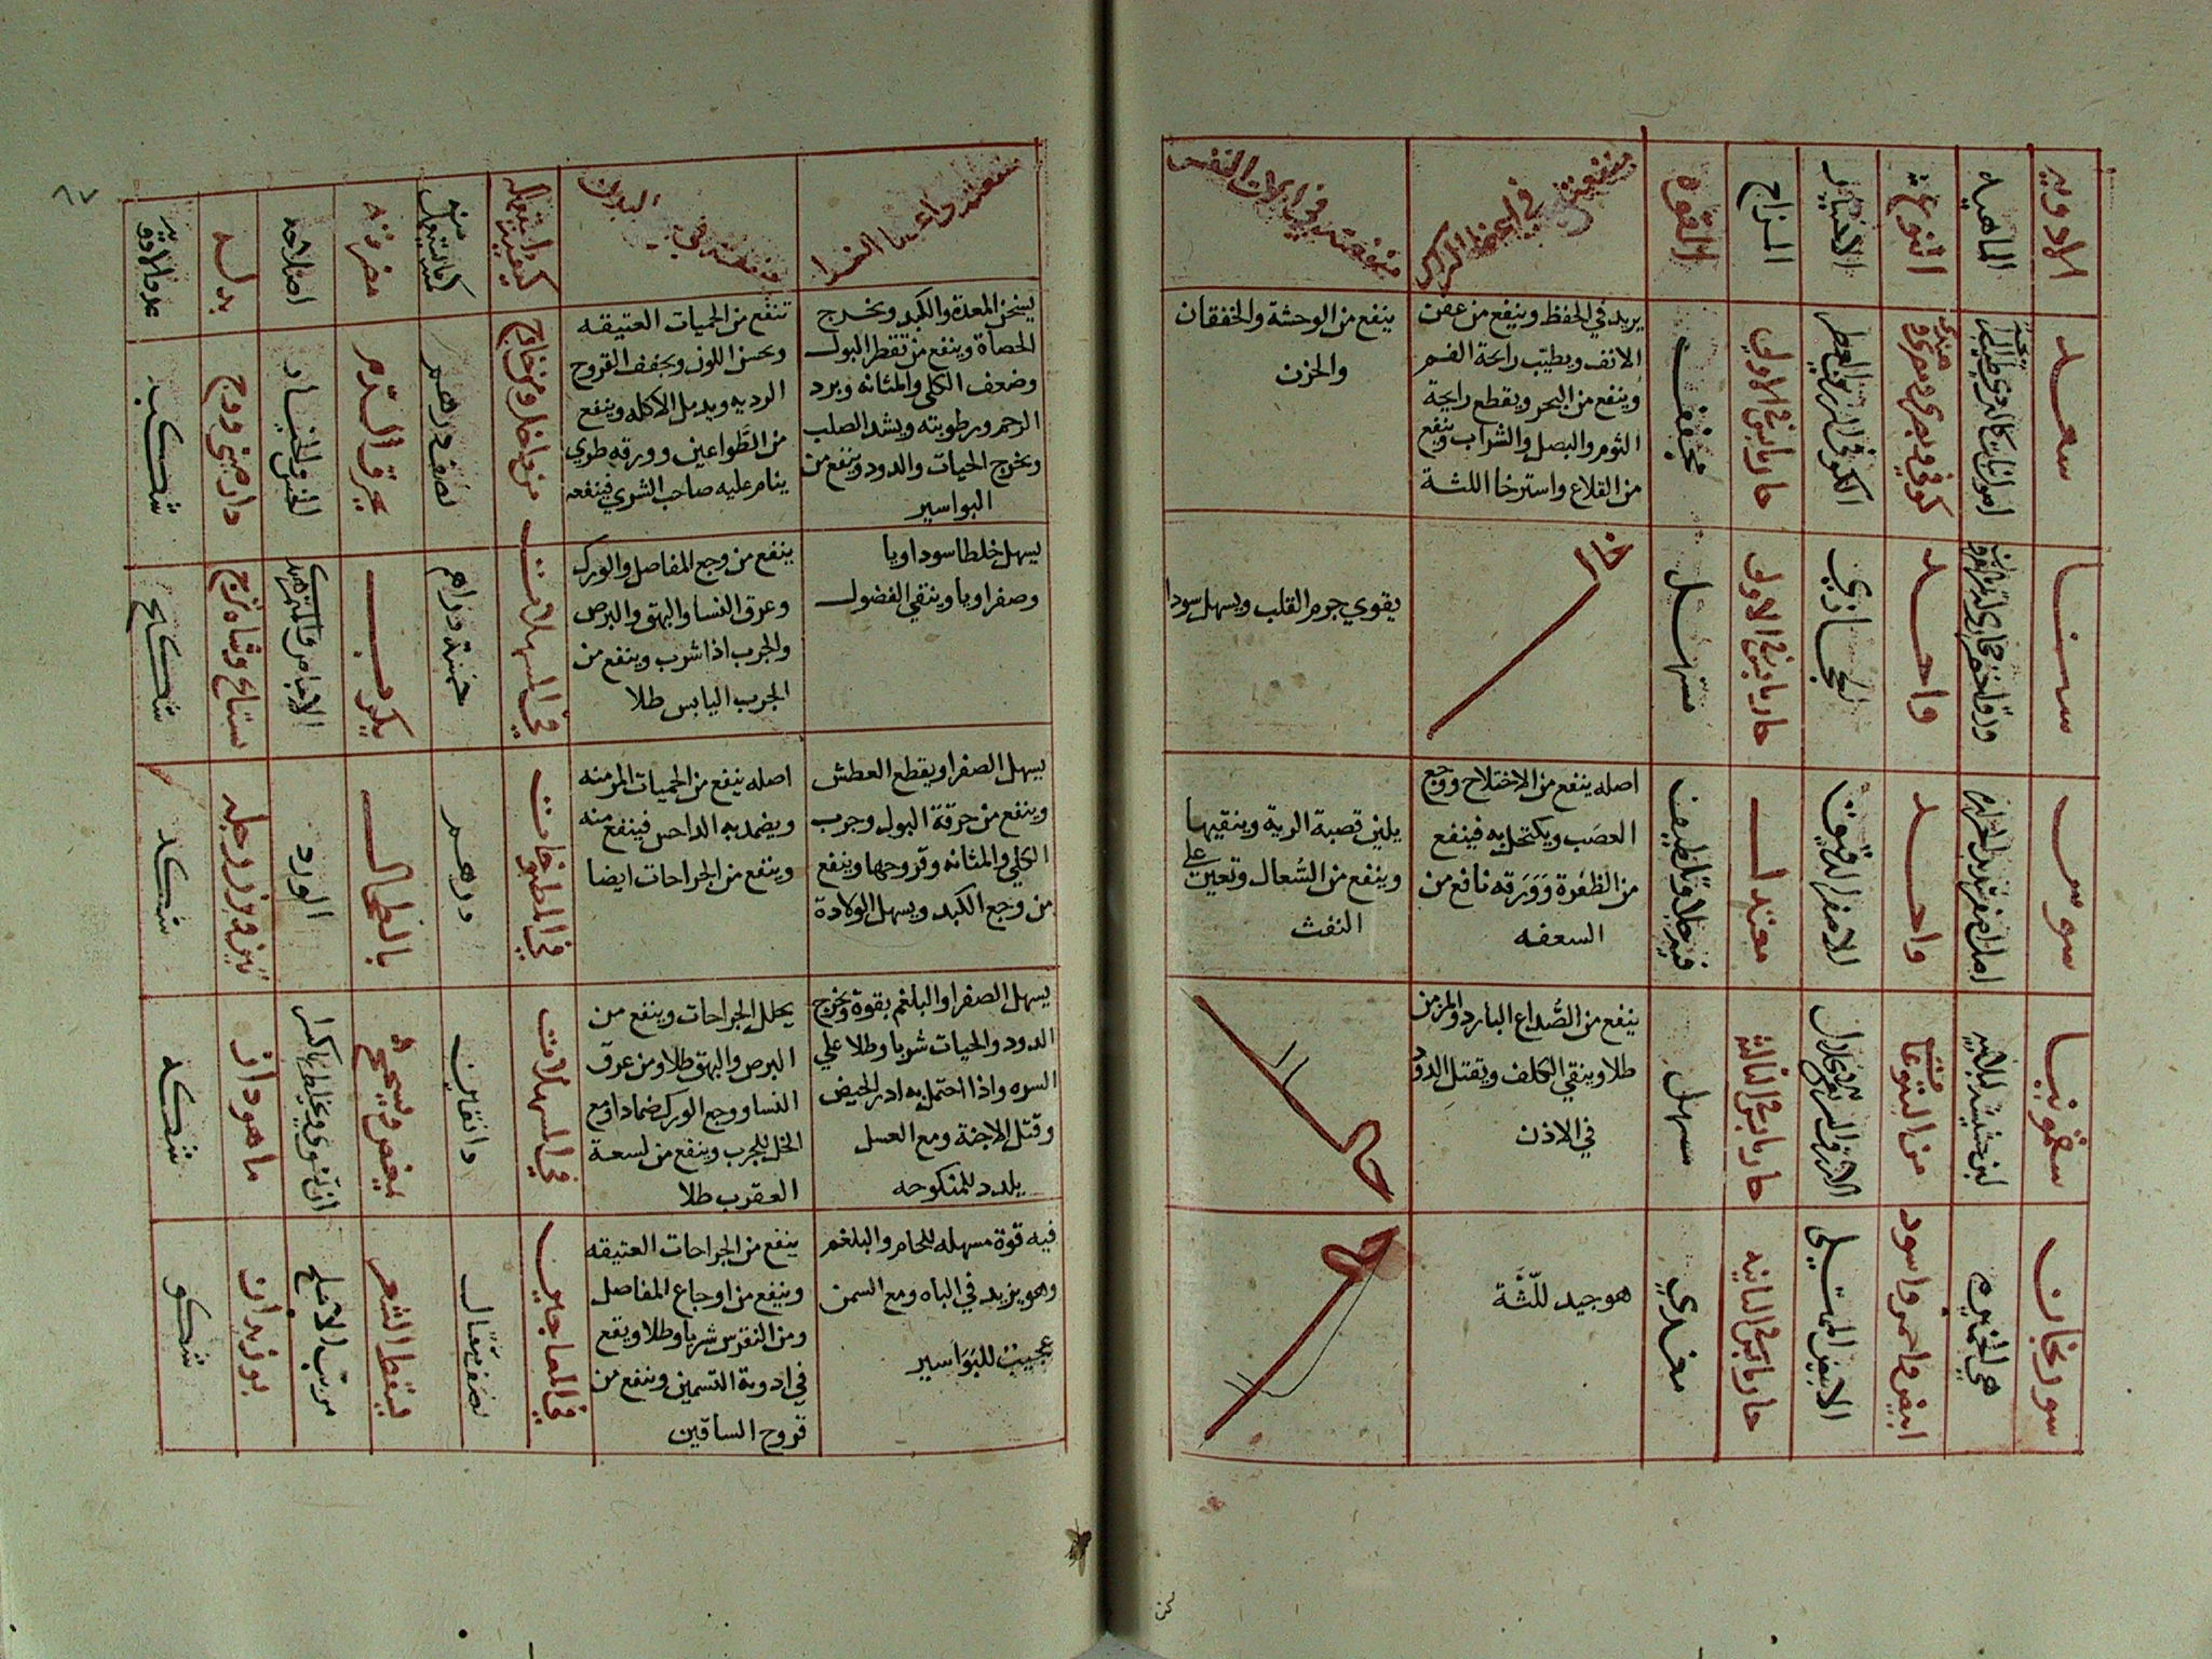 الادويه
الماهيه
النوع
الاختيار
المزاج
القوه
منفعته في اعضا الراس
منفعته في الات النفس
سعد
كوفي وبصري ومصري وهندي
حار يابس في الاولي
مجفف
يزيد في الحفظ وينفع من عفن
الانف ويطيب راحة الفم
وينفع من البخر ويقطع رايحة
الثوم والبصل والشراب وينفع
من القلاع واسترخا اللثة
ينفع من الوحشة والخفقان
والحزن
سنا
واحد
الحجازي
حار يابس في الاولي
مسهل
خال
يقوي جرم القلب ويسهل سودا
سوس
واحد
الاصفر الدقيق
معتدل
اصله ينفع من الاختلاج ووجع
العصب ويكتحل به فينفع
من الظفرة وورقه نافع من
السعفه
يلين قصبة الرية وينقيها
وينفع من السعال وتعين علي
النفث
سقمونيا
من اليتوعات
حار يابس في الثالثة
مسهل
ينفع من الصداع البارد والمزمن
طلا وينقي الكلف ويقتل الدود
في الاذن
خال
سورنجان
ابيض واحمر واسود
الابيض
حار يابس في الثانيه
هو جيد للثة
خال
٨٧
منفعته في اعضا الغذا
منفعته في البدن
كيفية استعماله
كمية ما يستعمل منه
مضرته
اصلاحه
بدله
عدد الادويه
يسخن المعدة والكبد ويخرج
الحصاة وينفع من تقطر البول
وضعف الكلي والمثانه وبرد
الرحم ورطوبته ويشد الصلب
ويخرج الحيات والدود وينفع من
البواسير
تنفع من الحميات العتيقه
ويحسن اللون ويجفف القروح
الرديه ويدمل الاكله وينفع
من الطواعين وورقه طري
ينام عليه صاحب الشري فينفعه
من داخل ومن خارج
نصف درهم
يحرق الدم
دارصيني ووج
يسهل خلطا سوداويا
وصفراويا وينقي الفضول
ينفع من وجع المفاصل والورك
وعرق النسا والبهق والبرص
والجرب اذا شرب وينفع من
الجرب اليابس طلا
في المسهلات
خمسة دراهم
يكرب
يسهل الصفرا ويقطع العطش
وينفع من حرقة البول وجرب
الكلي والمثانه وقروحها وينفع
من وجع الكبد ويسهل الولادة
اصله ينفع من الحميات المزمنه
ويضمد به الداحس فينفع منه
وينفع من الجراحات ايضا
في المطبوخات
درهم
بالطحال
الورد
يسهل الصفرا والبلغم بقوة ويخرج
الدود والحيات شربا وطلا علي
السره واذا احتمل به ادر الحيض
وقتل الاجنة ومع العسل
يلدد للمنكوحه
يحلل الجراحات وينفع من
البرص والبهق طلا ومن عرق
النسا ووجع الورك ضمادا ومع
الخل للجرب وينفع من لسعة
العقرب طلا
في المسهلات
دانقين
يمغص ويسحج
ماهودانه
فيه قوة مسهله للخام والبلغم
وهو يزيد في الباه ومع السمن
عجيب للبواسير
ينفع من الجراحات العتيقه
وينفع من اوجاع المفاصل
ومن النقرس شربا وطلا ويقع
في ادوية التسمين وينفع من
قروح الساقين
في المعاجين
نصف مثقال
يسقط الشعر
بوزيدان